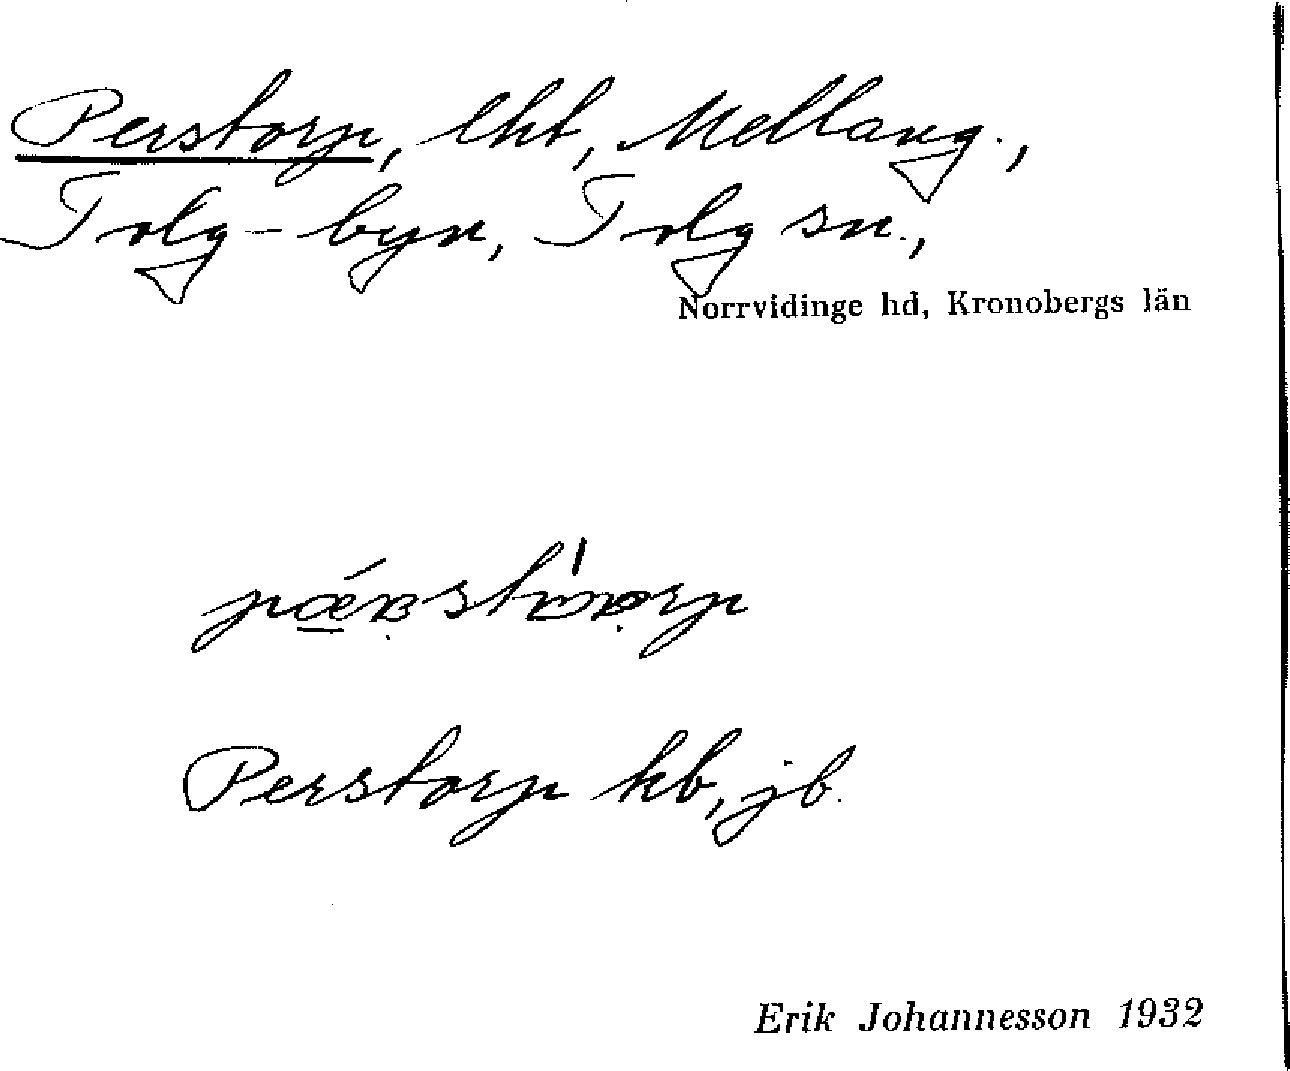 Perstorp, lht, Mellang.,
Tolg-byn, Tolg sn.,
Norrvidinge hd, Kronobergs län
Perstorp kb, jb.
Erik Johannesson 1932